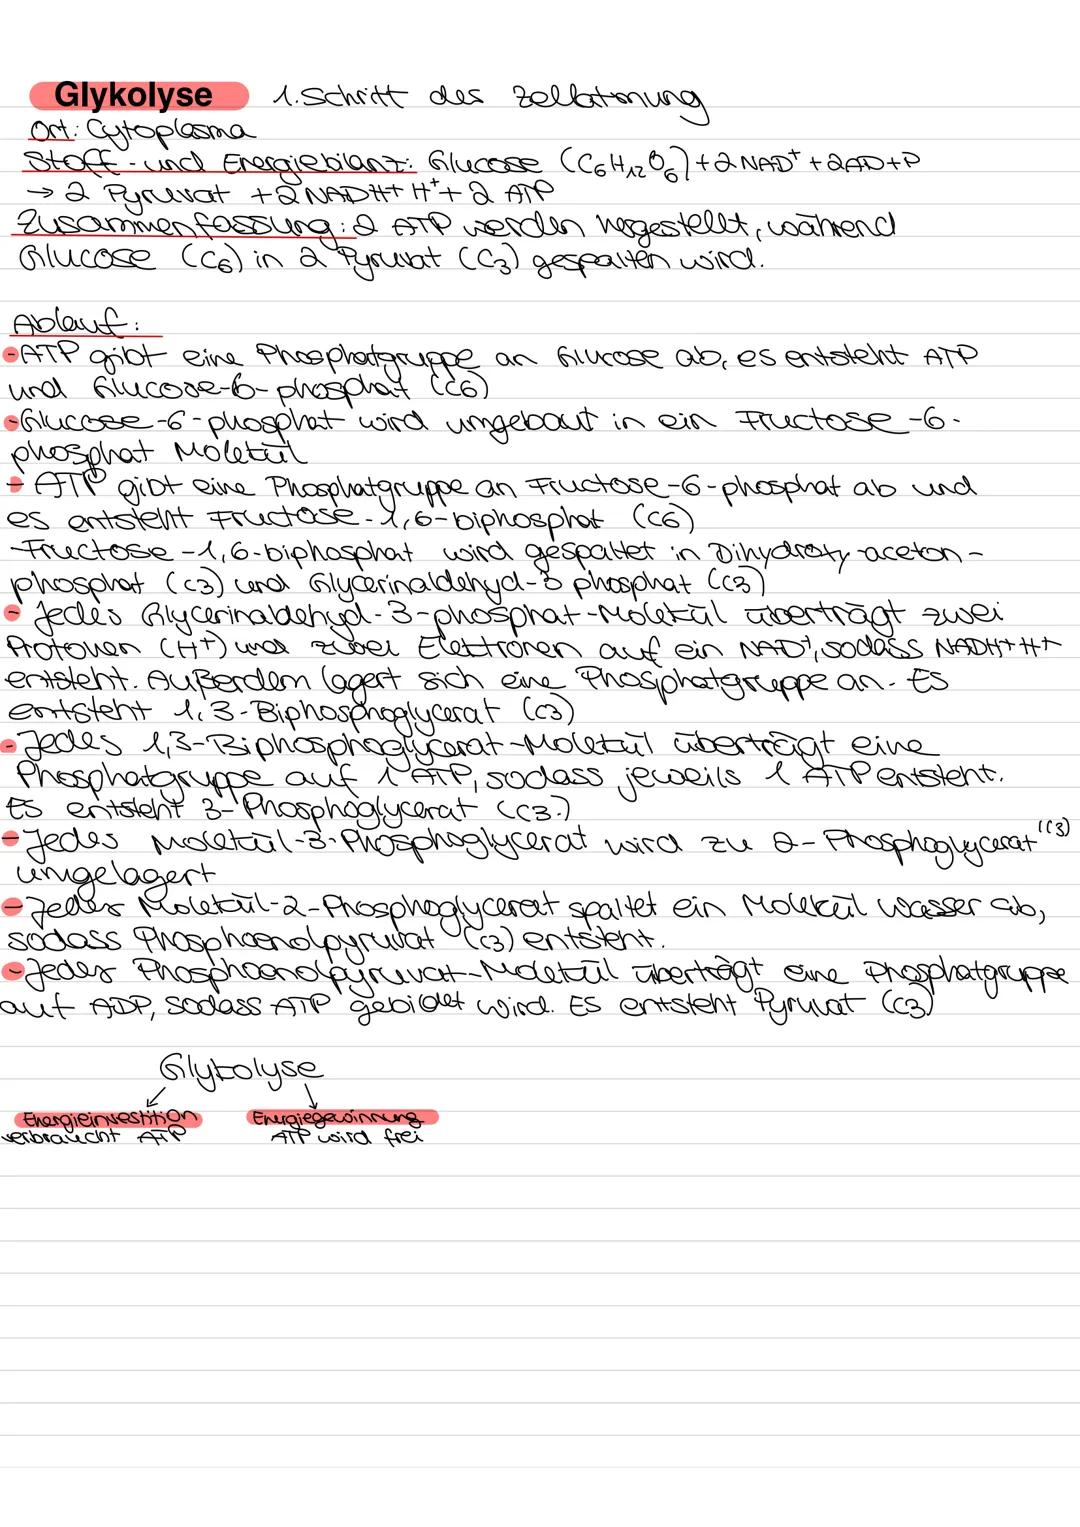 Glykolyse 1. Schritt des Zellatmung
Ort: Cytoplasma
Stoff- und Energiebilanz: Glucose (C₆H₁₂O₆) + 2 NAD⁺ + 2 AD + P
→ 2 Pyruvat + 2 NADH + H⁺ + 2 ATP
Zusammenfassung: 2 ATP werden hergestellt, während
Glucose (C₆) in 2 Pyruvat (C₃) gespalten wird.
Ablauf:
- ATP gibt eine Phosphatgruppe an Glucose ab, es entsteht ATP
und Glucose-6-phosphat (C6)
- Glucose-6-phosphat wird umgebaut in ein Fructose-6-
phosphat Molekül
- ATP gibt eine Phosphatgruppe an Fructose-6-phosphat ab und
es entsteht Fructose-1,6-biphosphat (C6)
- Fructose-1,6-biphosphat wird gespaltet in Dihydroxy-aceton-
phosphat (C3) und Glycerinaldehyd-3 phosphat (C3)
- Jedes Glycerinaldehyd-3-phosphat-Molekül überträgt zwei
Protonen (H+) und zwei Elektronen auf ein NAD⁺, sodass NADH+H+
entsteht. Außerdem lagert sich eine Phosphatgruppe an. Es
entsteht 1,3-Biphosphoglycerat (C3)
- Jedes 1,3-Biphosphoglycerat-Molekül überträgt eine
Phosphatgruppe auf 1 ATP, sodass jeweils 1 ATP entsteht.
Es entsteht 3-Phosphoglycerat (C3.)
- Jedes Molekül-3-Phosphoglycerat wird zu 2-Phosphoglycerat (C3)
umgelagert
- Jedes Molekül-2-Phosphoglycerat spaltet ein Molekül Wasser ab,
sodass Phosphoenolpyruvat (C3) entsteht.
- Jedes Phosphoenolpyruvat-Molekül überträgt eine Phosphatgruppe
auf ADP, sodass ATP gebildet wird. Es entsteht Pyruvat (C3)
Glykolyse
Energieinvestition Energiegewinnung
verbraucht ATP ATP wird frei